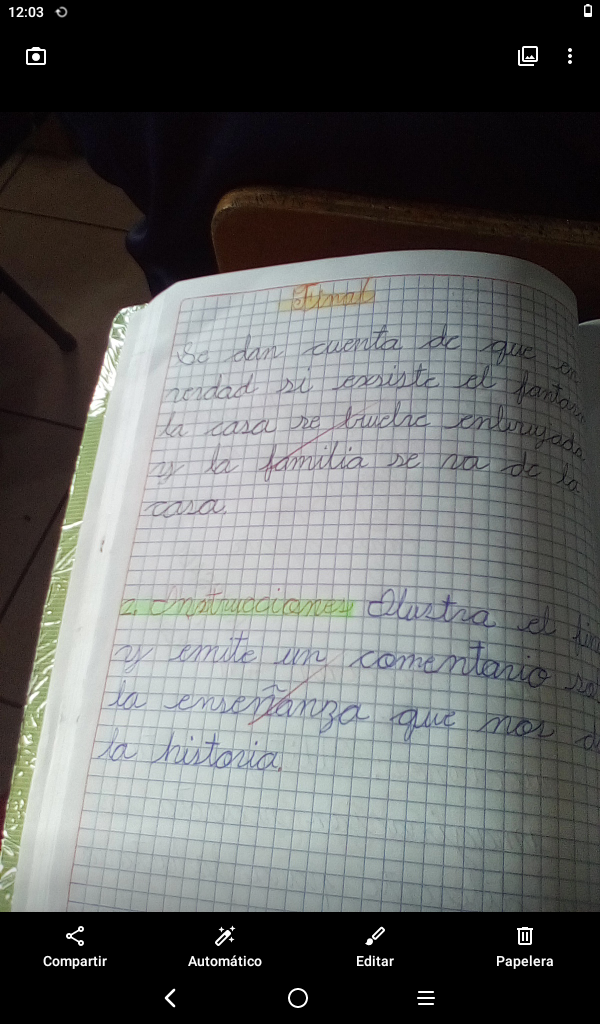 12:03
Final
Se dan cuenta de que en
verdad si exsiste el
la casa se buelve enbrujada
y la familia se va de la
casa.
2. Instrucciones Ilustra el
y emite un comentario
la enseñanza que nos
la historia.
Compartir
Automático
Editar
Papelera